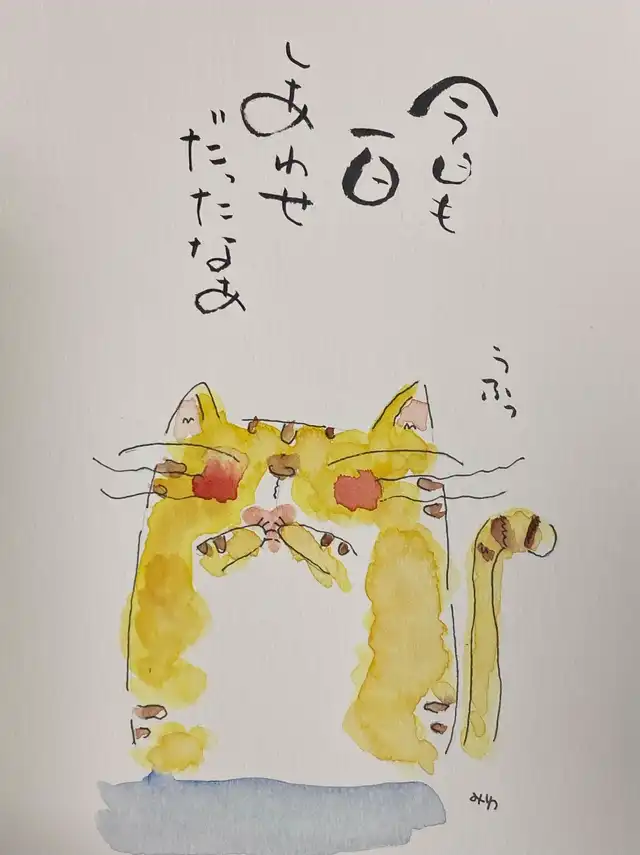 今日も
一日
しあわせ
だったなあ
うふっ
みわ